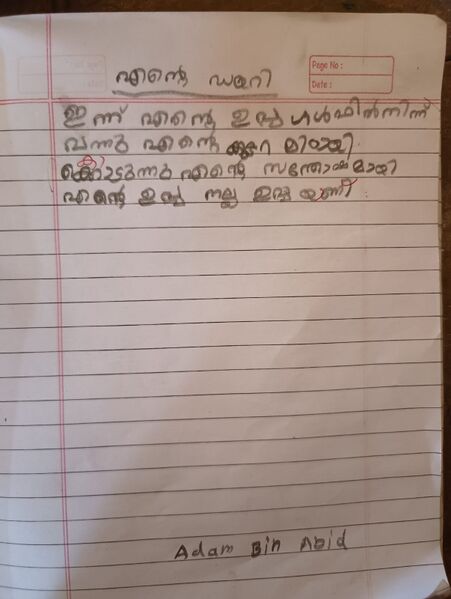 എന്റെ ഡയറി
Page No :
Date :
ഇന്ന് എന്റെ ഇപ്പ ഗൾഫിൽനിന്ന്
വന്നു എന്റെ കുറെ മിഠായി
കൊടുന്നു എന്റെ സന്തോഷമായി
എന്റെ ഇപ്പ നല്ല ഇപ്പ യാണ്
Adam Bin Abid